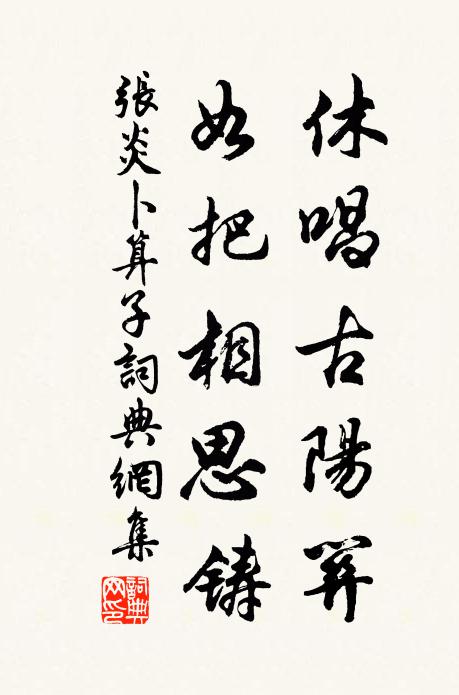 休唱古陽關
如把相思鑄
張炎卜算子詞典網集
詞典網印